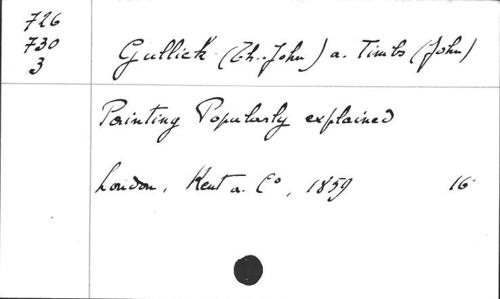 726
730
3
Gullick (Th. John) a. Timbs (John)
Painting Popularly explained
London, Kent a. Co, 1859 16